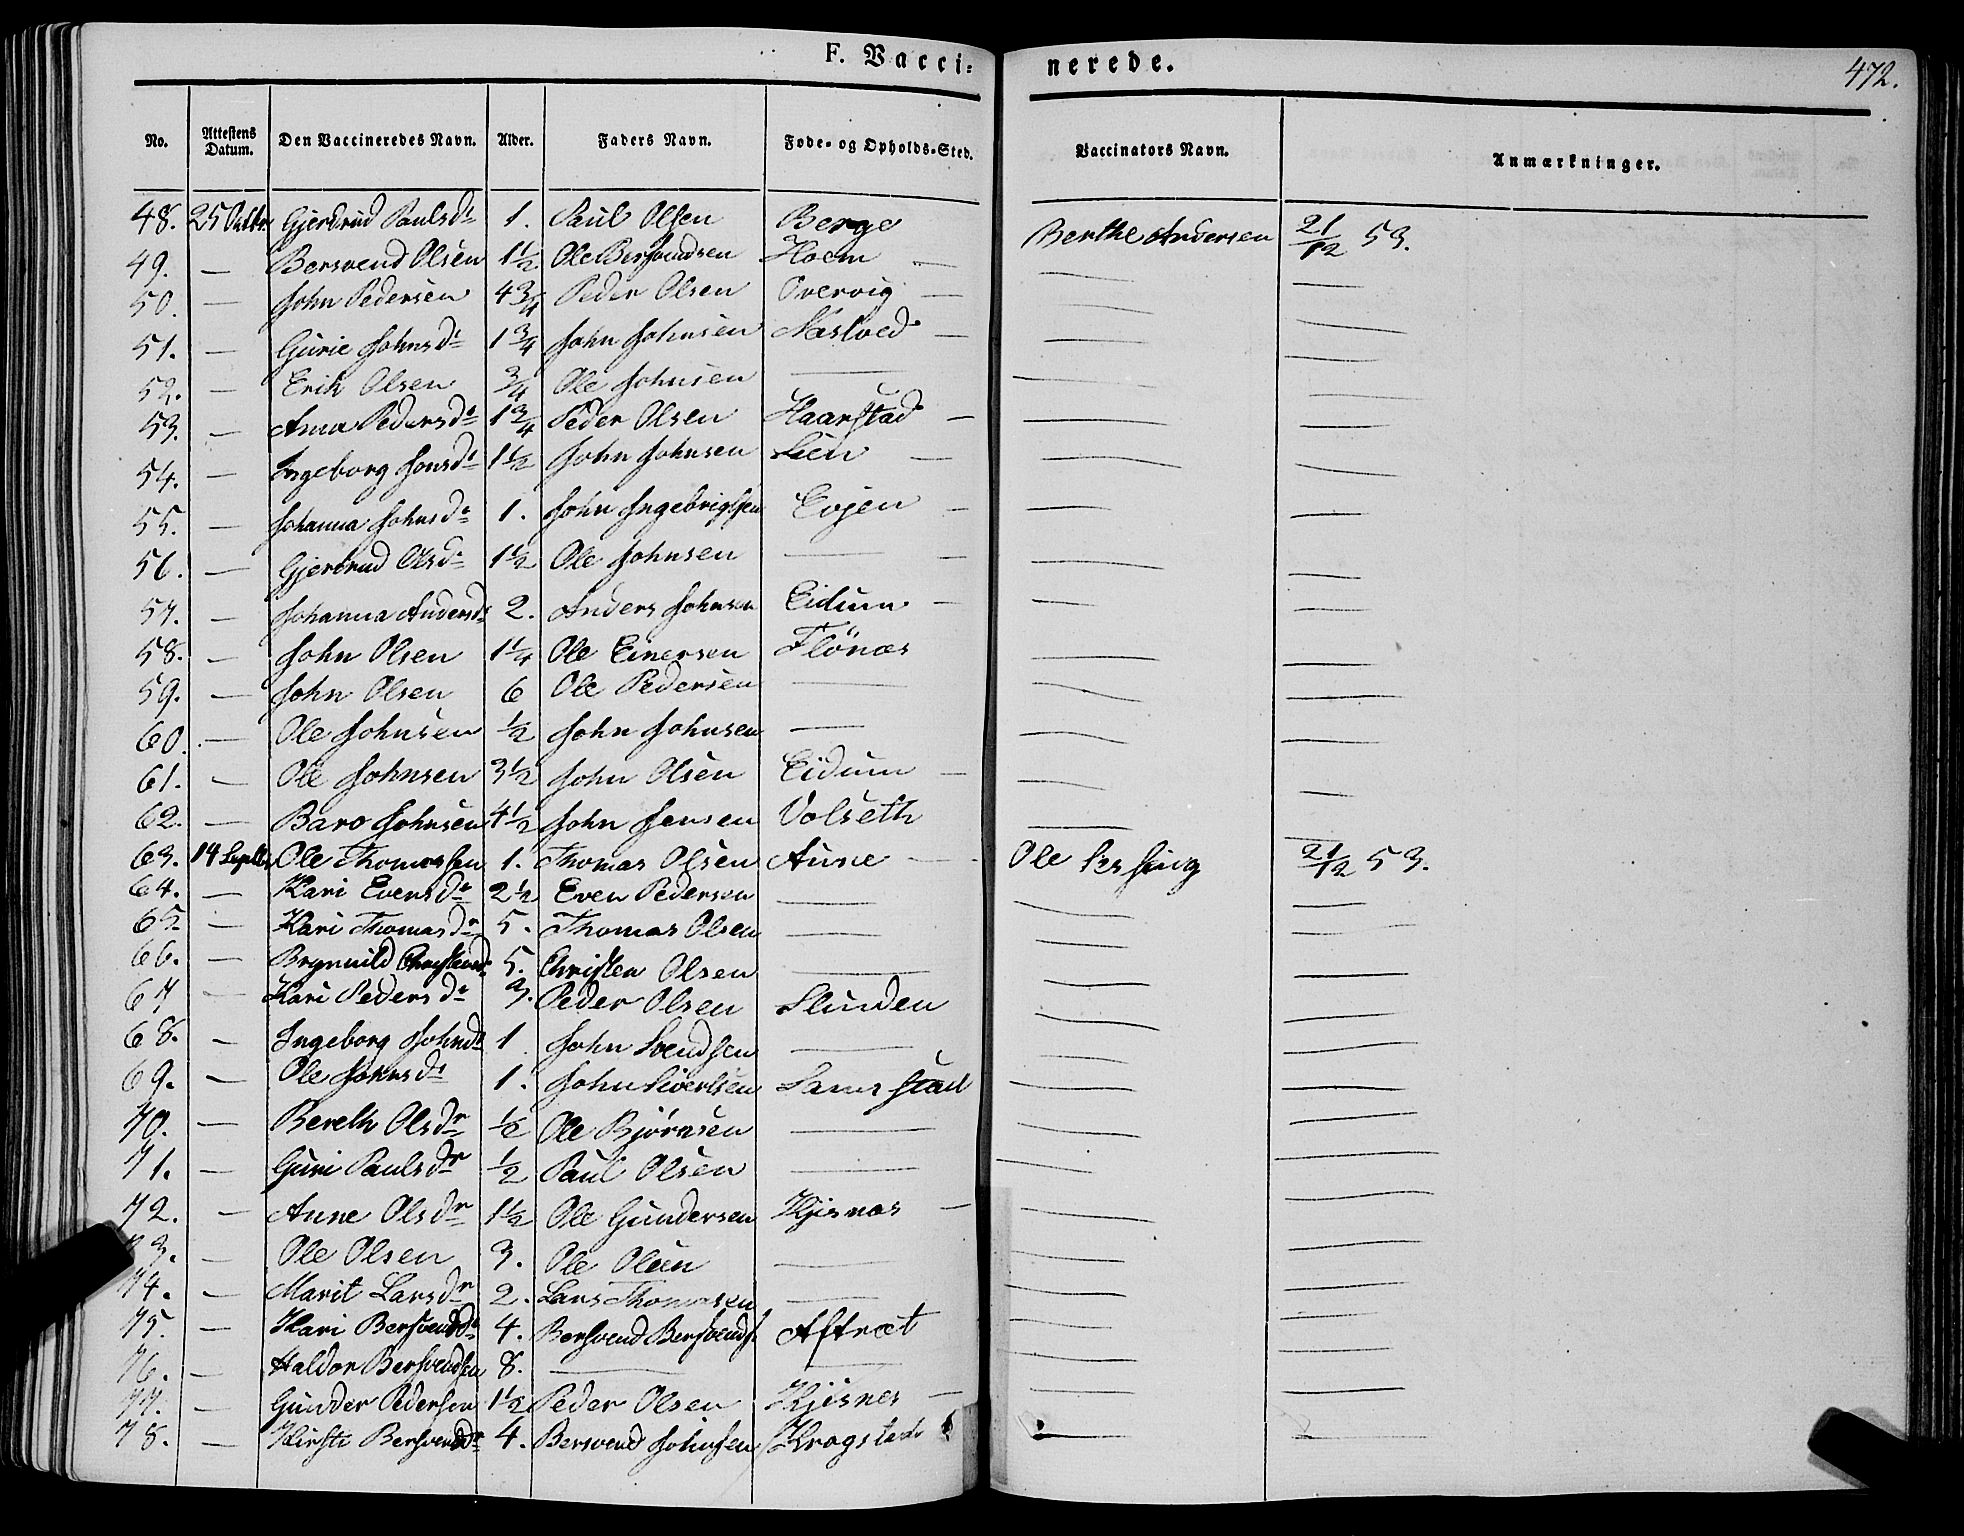 F. Vacci= nerede.
472.
No. Attestens Datum. Den Vaccineredes Navn. Alder. Faders Navn. Føde- og Opholds-Sted. Vaccinators Navn. Anmærkninger.
48. 25 Octbr. Gjertrud Paulsdr 1. Paul Olsen Berge Berthe Andersen 21/12 53.
49. — Bersvend Olsen 1½ Ole Bersvendsen Hoem — — —
50. — John Pedersen 4¾ Peder Olsen Overvig — — —
51. — Gurie Johnsdr 1¾ John Johnsen Næslved — — —
52. — Erik Olsen ¾ Ole Johnsen — — —
53. — Anna Pedersdr 1¾ Peder Olsen Haarstad — — —
54. — Ingeborg Jonsdr 1½ John Johnsen Lien — — —
55. — Johanna Johnsdr 1. John Ingebrigtsen Evjen — — —
56. — Gjertrud Olsdr 1½ Ole Johnsen — — — —
57. — Johanna Andersdr 2. Anders Johnsen Eidum — — —
58. — John Olsen 1¼ Ole Einersen Flönæs — —
59. — John Olsen 6 Ole Pedersen — — —
60. — Ole Johnsen ½ John Johnsen — — —
61. — Ole Johnsen 3½ John Olsen Eidum — — —
62. — Baro Johnsen 4½ John Jensen Volseth — —
63. 14 Septbr Ole Thomassen 1. Thomas Olsen Aune — Ole 21/12 53.
64. — Kari Evensdr 2½ Even Pedersen — — —
65. — Kari Thomasdr 5. Thomas Olsen — — —
66. — Brynnild Christensdr 5. Christen Olsen — — —
67 — Kari Pedersdr 3. Peder Olsen Slinden — —
68. — Ingeborg Johnsdr 1 John Svendsen — — —
69. — Ole Johnsdr 1. John Sivertsen — —
70. — Bereth Olsdr ½ Ole Bjørnsen — — —
71. — Guri Paulsdr ½ Paul Olsen — — —
72. — Anne Olsdr 1½ Ole Gundersen Kjisnæs — — —
73. — Ole Olsen 3. Ole Olsen — — —
74. — Marit Larsdr 2. Lars Thomasen — — —
75. — Kari Bersvendsdr 4. Bersvend Bersvends. Aftræt — —
76. — Haldor Bersvendsen 8. — — — —
77. — Gunder Pedersen 1½ Peder Olsen Kjisnes — — —
78. — Kirsti Bersvendsdr 4. Bersvend Johnsen Krogstad — —